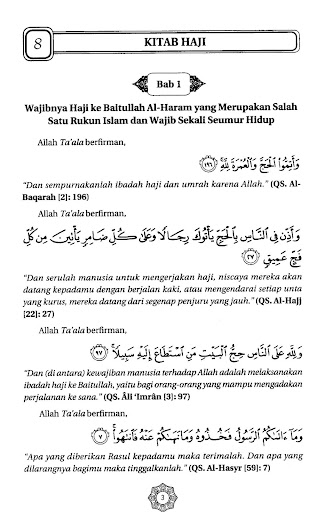 8
KITAB HAJI
Bab 1
Wajibnya Haji ke Baitullah Al-Haram yang Merupakan Salah
Satu Rukun Islam dan Wajib Sekali Seumur Hidup
Allah Ta'ala berfirman,
وَأَتِمُّوا۟ ٱلْحَجَّ وَٱلْعُمْرَةَ لِلَّهِ ۝١٩٦
"Dan sempurnakanlah ibadah haji dan umrah karena Allah." (QS. Al-
Baqarah [2]: 196)
Allah Ta'ala berfirman,
وَأَذِّن فِى ٱلنَّاسِ بِٱلْحَجِّ يَأْتُوكَ رِجَالًا وَعَلَىٰ كُلِّ ضَامِرٍ يَأْتِينَ مِن كُلِّ
فَجٍّ عَمِيقٍ ۝٢٧
"Dan serulah manusia untuk mengerjakan haji, niscaya mereka akan
datang kepadamu dengan berjalan kaki, atau mengendarai setiap unta
yang kurus, mereka datang dari segenap penjuru yang jauh." (QS. Al-Hajj
[22]: 27)
Allah Ta'ala berfirman,
وَلِلَّهِ عَلَى ٱلنَّاسِ حِجُّ ٱلْبَيْتِ مَنِ ٱسْتَطَاعَ إِلَيْهِ سَبِيلًا ۝٩٧
"Dan (di antara) kewajiban manusia terhadap Allah adalah melaksanakan
ibadah haji ke Baitullah, yaitu bagi orang-orang yang mampu mengadakan
perjalanan ke sana." (QS. Âli 'Imrân [3]: 97)
Allah Ta'ala berfirman,
وَمَآ ءَاتَىٰكُمُ ٱلرَّسُولُ فَخُذُوهُ وَمَا نَهَىٰكُمْ عَنْهُ فَٱنتَهُوا۟ ۝٧
"Apa yang diberikan Rasul kepadamu maka terimalah. Dan apa yang
dilarangnya bagimu maka tinggalkanlah." (QS. Al-Hasyr [59]: 7)
3